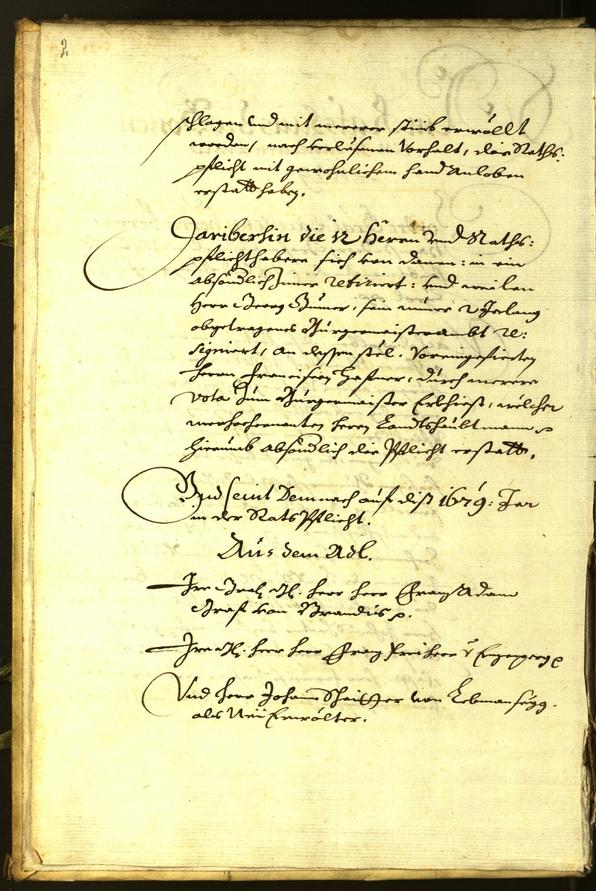 2
schlagen und mit merer stüb erwöllt
worden, nach verlesnen Vorhalt, die Raths:
pflicht mit gewohnlichem handt Anloben
erstatt haben.
Dariberhin die 12 herrn und Raths:
pflichthabere sich von danen: in ein
absönd[er]lich Zimer retiriert: und weilen
Herr Georg, sein nun 2 Jar lang
obgetragenes Burgermaisterambt re:
signiert, an dessen stöl, Voreingefierten
herrn Francisen Hafner, durch merere
vota zum Burgermaister Erkhiest, welcher
herrn Landtshaubtmann
hierumb absönderlich die Pflicht erstatt.
Und seint Demnach auf diß 1679: Jar
in der Rats Pflicht.
Aus dem Adl.
Ir Graf. herr herr Franz Adam
Graf von Brandis p.
Ir. herr herr Franz freiherr
Und herr Johann von
als Neu Erwölter.